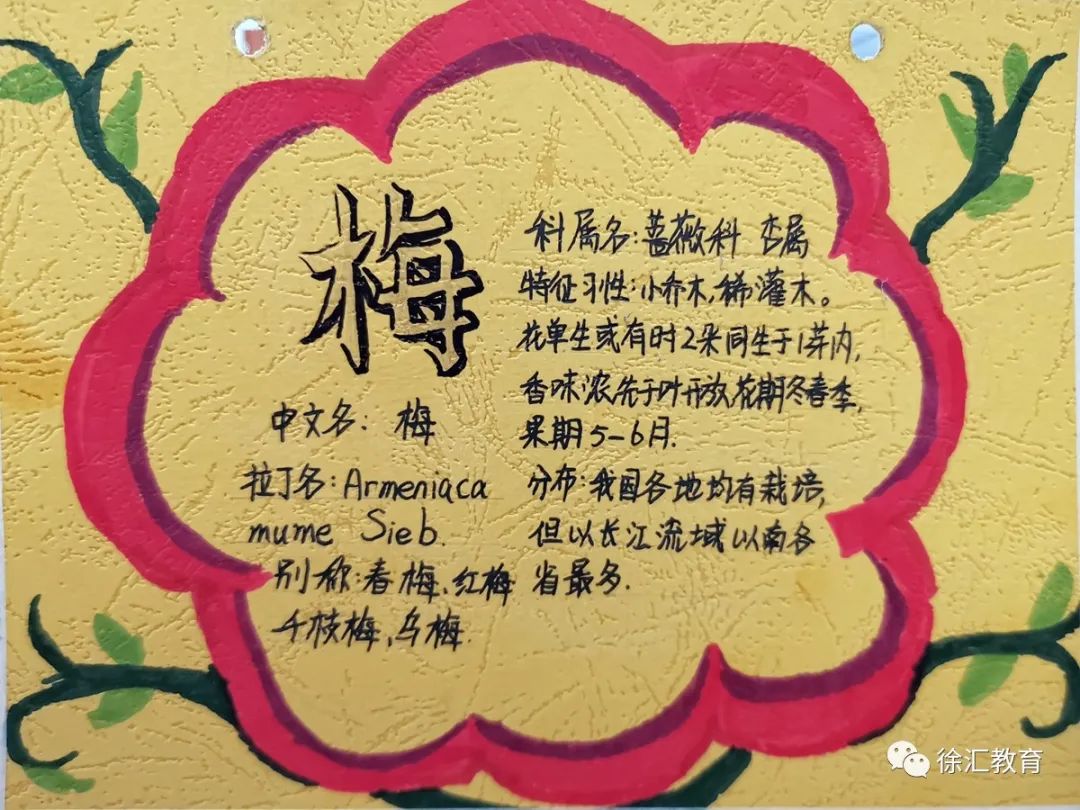 梅
中文名：梅
拉丁名：Armeniaca
mume Sieb.
别称：春梅、红梅
千枝梅，乌梅.
科属名：蔷薇科 杏属
特征习性：小乔木，稀灌木。
花单生或有时2朵同生于1芽内，
香味浓先于叶开放花期冬春季，
果期5-6月.
分布：我国各地均有栽培，
但以长江流域以南各
省最多.
徐汇教育